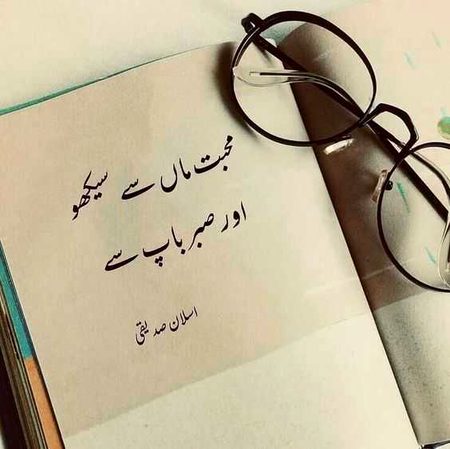 محبت ماں سے سیکھو
اور صبر باپ سے
اسلان صدیقی